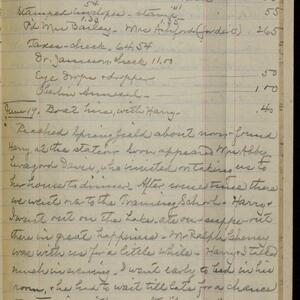 54 41
Stamped envelopes - stamps
1.30 1.35
Pd Mrs Dailey - Mrs (for d. o) 265
Taxes - check, 64,54
Dr. Jameson check 11.00
Eye Drops + dropper 50
Annual - 1 00
June 19. Boat hire, with Harry - 40
Reached Springfield about noon + found
Harry at the station. Soon appeared Mrs Abby
Davis, who insisted on taking us to
her house to dinner. After some time there
we went on to the Training School. Harry +
I went out on the Lake, ate our supper out
there in great happiness - Mr Ralph
was with us for a little while - Harry + I talked
much in evening. I went early to bed in his
room, + he had to wait till late for a chance